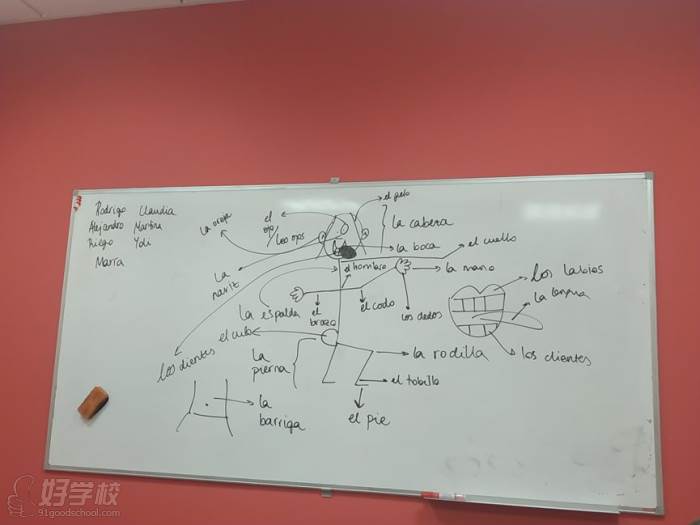 Rodrigo Claudia
Alejandro Martina
Diego Yoli
Marra
la oreja
el ojo/los ojos
el pelo
la cabeza
la boca
el cuello
la nariz
el hombro
la mano
la espalda
el brazo
el codo
los dedos
los labios
la lengua
los dientes
el culo
los dientes
la pierna
la rodilla
el tobillo
la barriga
el pie
好学校
91goodschool.com